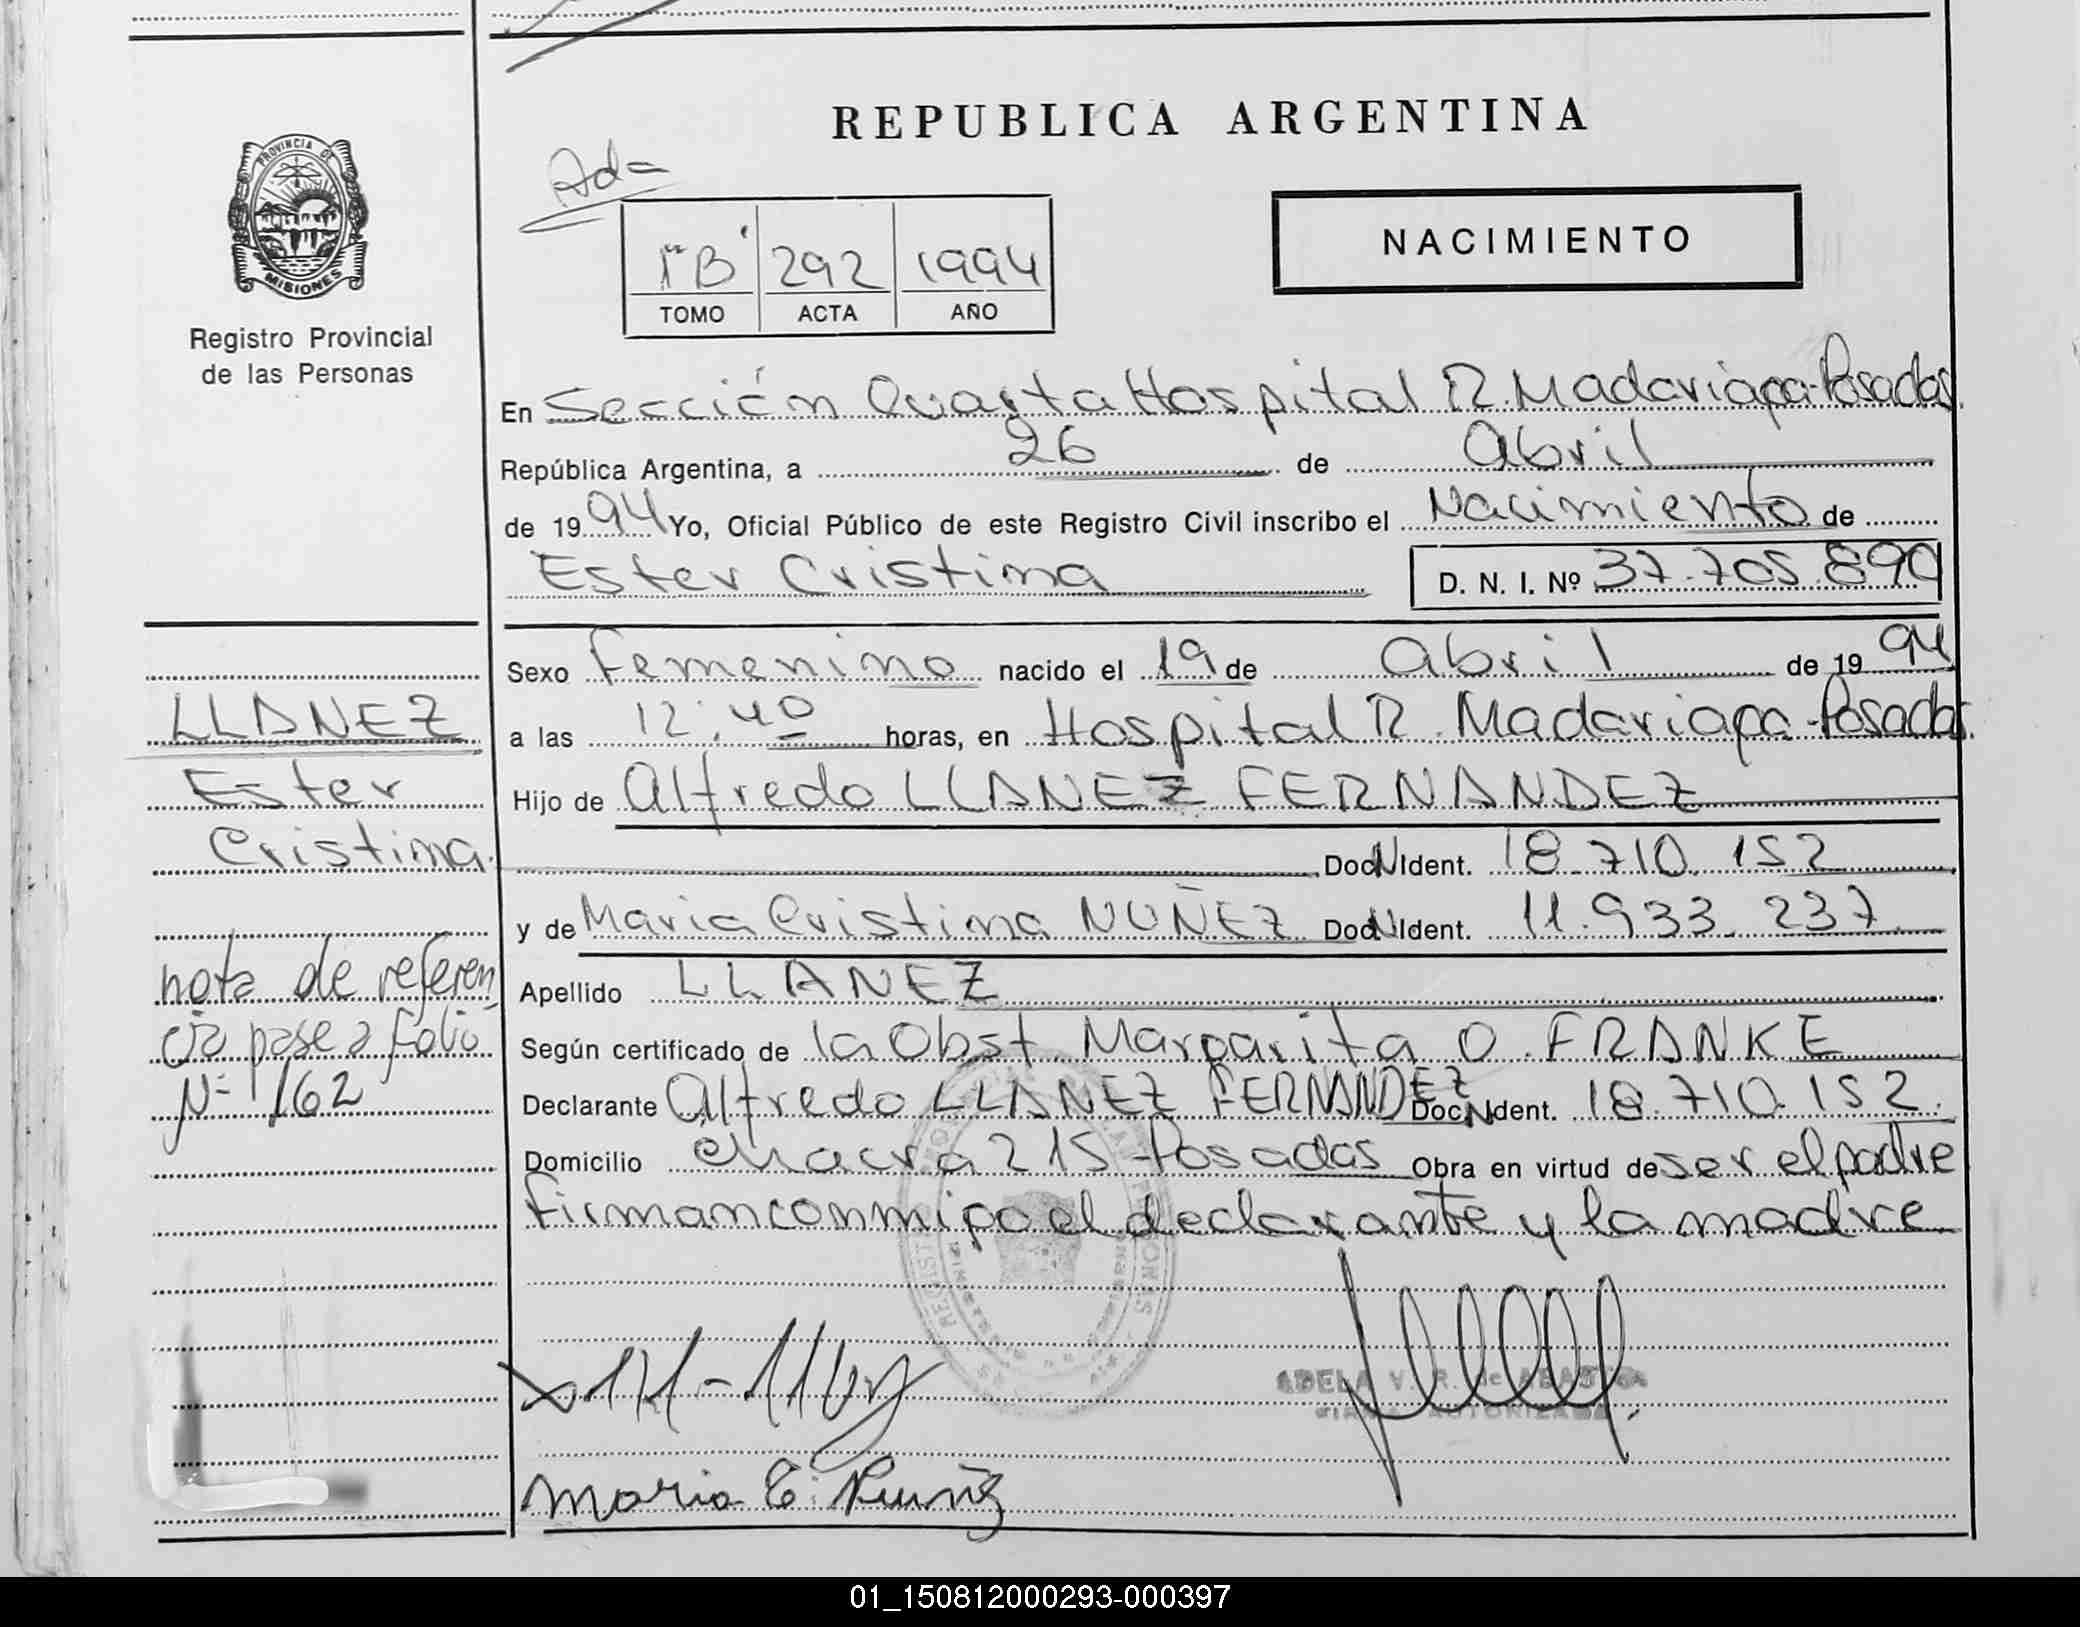 REPUBLICA ARGENTINA
PROVINCIA DE
MISIONES
Registro Provincial
de las Personas
Ad=
1º "B" 292 1994
TOMO ACTA AÑO
NACIMIENTO
En Sección Cuarta Hospital R. Madariaga-Posadas
República Argentina, a 26 de Abril
de 1994 Yo, Oficial Público de este Registro Civil inscribo el Nacimiento de
Ester Cristina D. N. I. Nº 37.705.890
Sexo Femenino nacido el 19 de Abril de 1994
a las 12:40 horas, en Hospital R. Madariaga-Posadas.
Hijo de Alfredo LLANEZ FERNANDEZ
Doc N Ident. 18.710.152
y de Maria Cristina NUÑEZ Doc N Ident. 11.933.237
Apellido LLANEZ
Según certificado de la Obst Margarita O. FRANKE
Declarante Alfredo LLANEZ FERNANDEZ Doc N Ident. 18.710.152.
Domicilio Chacra 215 - Posadas Obra en virtud de ser el padre
firman conmigo el declarante y la madre
LLANEZ
Ester
Cristina
nota de referen
cia pase a folio
Nº 162
ADELA V. R. de
FIRMA AUTORIZADA
Maria C. Nuñez
01_150812000293-000397